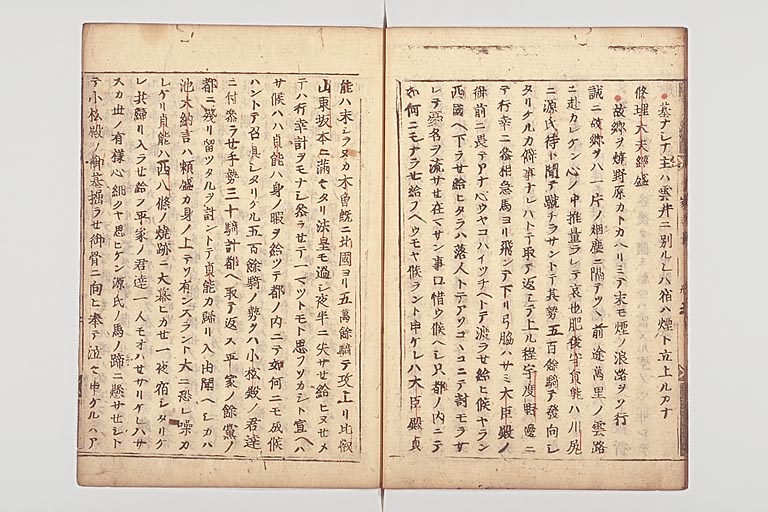 墓ナレテ主ハ雲井ニ別ルレハ宿ハ煙ト立上ルカナ
修理大夫經盛
故郷ヲ焼野原カトカヘリミテ末モ煙ノ浪路ヲソ行
誠ニ故郷ヲハ一片ノ烟塵ニ隔テツヽ前途萬里ノ雲路
ニ赴カレケン心ノ中推量ラレテ哀也肥後守貞能ハ川尻
ニ源氏待ト聞テ蹴チラサントテ其勢五百餘騎テ發向シ
タリケルカ僻事ナレハトテ取テ返シテ上ル程宇度野邊ニ
テ行幸ニ參相急馬ヨリ飛ンテ下リ弓脇ハサミ大臣殿ノ
御前ニ畏テアナ心ウヤコハイツチヘトテ渡ラせ給ヒ候ヤラン
西國ヘ下ラせ給ヒタラハ落人トテアソココヽニテ討モラサ
レテ名ヲ流サせ在マサン事口惜ウ候ヘシ只都ノ内ニテ
如何ニモナラせ給フヘウモヤ候ラント申ケレハ大臣殿貞
能ハ末シラヌカ木曽既ニ北國ヨリ五萬餘騎テ攻上リ比叡
山東坂本ニ滿せタリ法皇モ過シ夜半ニ失サせ給ヒヌせメ
テハ行幸計ヲモナシ參ラせテ一マツトモト思フソカシト宣ヘハ
サ候ハヽ貞能ハ身ノ暇ヲ給ツテ都ノ内ニテ如何ニモ成候
ハントテ召具シタリケル五百餘騎ノ勢ヲハ小松殿ノ君達
ニ付參ラせ手勢三十騎計都ヘ取テ返ス平家ノ餘黨ノ
都ニ殘リ留ツタルヲ討ントテ貞能カ歸リ入由聞ヘシカハ
池大納言ハ頼盛カ身ノ上テソ有ンスラント大ニ恐レ噪カ
レケリ貞能ハ西八條ノ焼跡ニ大幕ヒカせ一夜宿シタリケ
レ共歸リ入ラせ給フ平家ノ君達一人モオハせサリケレハサ
スカ世ノ有様心細クヤ思ヒケン源氏ノ馬ノ蹄ニ懸サせシト
テ小松殿ノ御墓掘ラせ御骨ニ向ヒ奉テ泣々申ケルハア